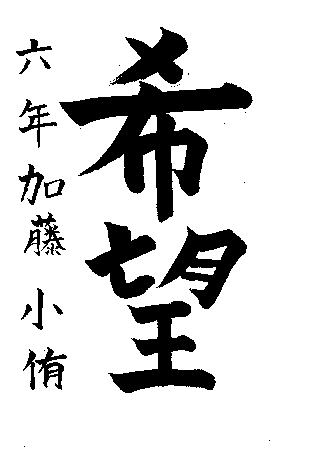 希望
六年加藤小侑